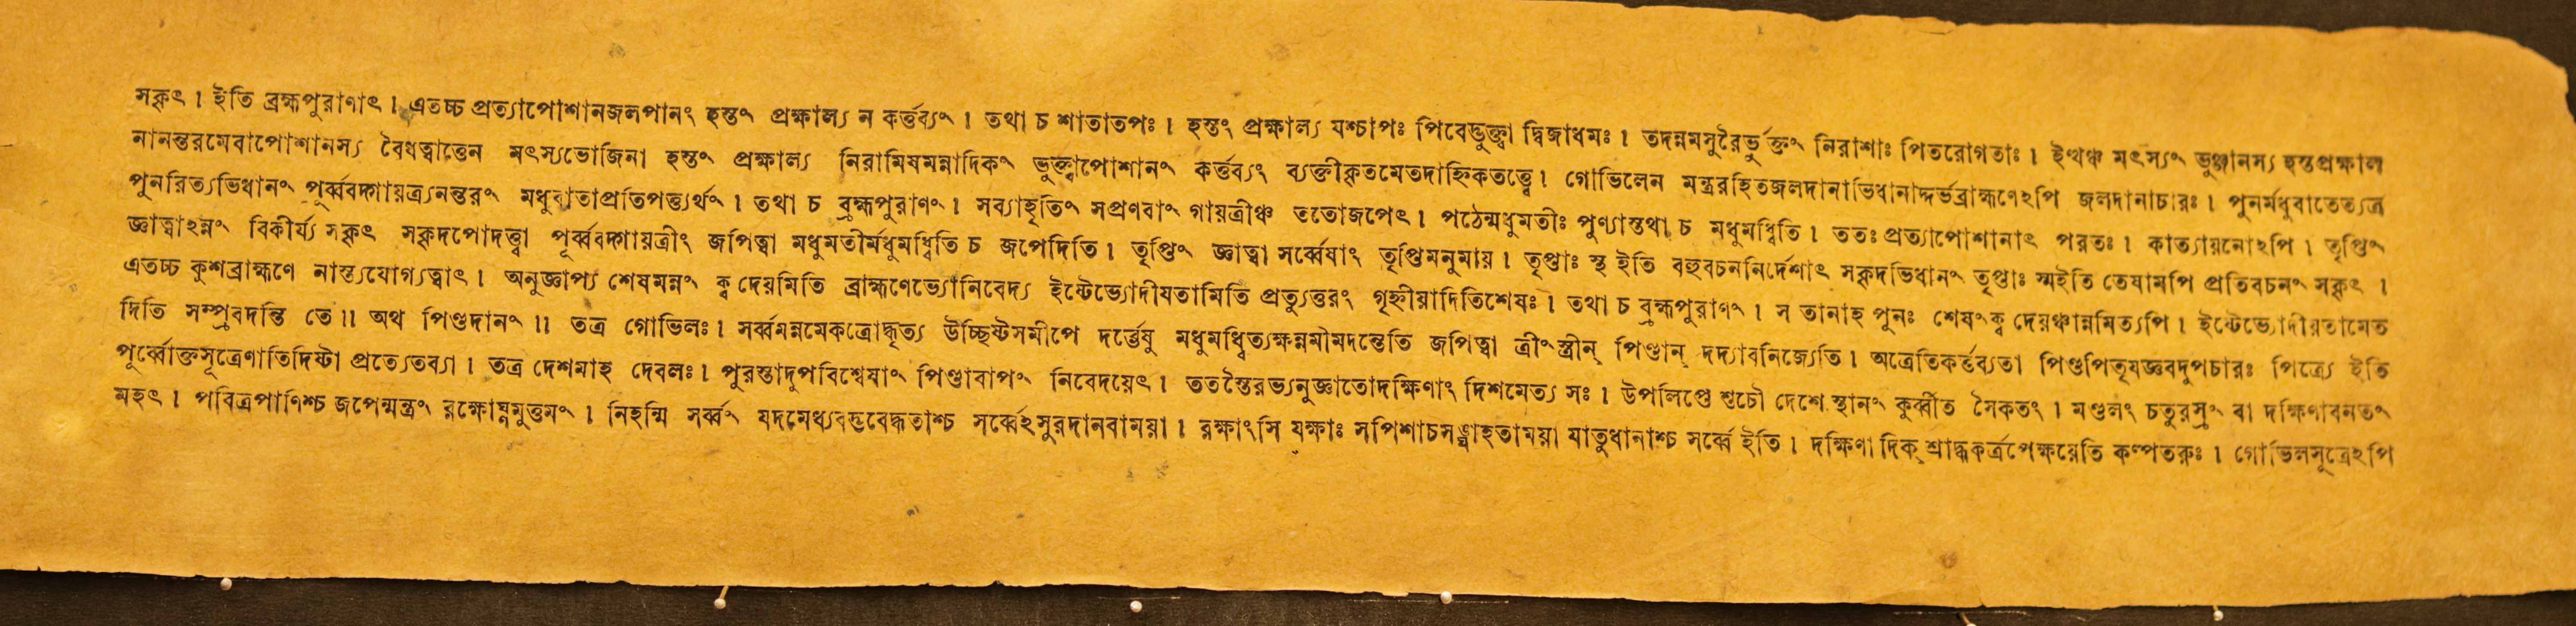 সকৃৎ । ইতি ব্রহ্মপুরাণাৎ । এতচ্চ প্রত্যাপোশানজলপানং হস্তং প্রক্ষাল্য ন কর্ত্তব্যং । তথা চ শাতাতপঃ । হস্তং প্রক্ষাল্য যশ্চাপঃ পিবেদ্ভুক্ত্বা দ্বিজাধমঃ । তদন্নমসুরৈর্ভুক্তং নিরাশাঃ পিতরোগতাঃ । ইত্থঞ্চ মৎস্যং ভুঞ্জানস্য হস্তপ্রক্ষাল
নানন্তরমেবাপোশানস্য বৈধত্বাত্তেন মৎস্যভোজিনা হস্তং প্রক্ষাল্য নিরামিষমন্নাদিকং ভুক্ত্বাপোশানং কর্ত্তব্যং ব্যক্তীকৃতমেতদাহ্নিকতত্ত্বে । গোভিলেন মন্ত্ররহিতজলদানাভিধানাদ্দর্ভব্রাহ্মণেঽপি জলদানাচারঃ । পুনর্মধুবাতেত্যত্র
পুনরিত্যভিধানং পূর্ব্ববদ্গায়ত্র্যনন্তরং মধুবাতাপ্রতিপত্ত্যর্থং । তথা চ ব্রহ্মপুরাণং । সব্যাহৃতিং সপ্রণবাং গায়ত্রীঞ্চ ততোজপেৎ । পঠেন্মধুমতীঃ পুণ্যাস্তথা চ মধুমধ্বিতি । ততঃ প্রত্যাপোশানাৎ পরতঃ । কাত্যায়নোঽপি । তৃপ্তিং
জ্ঞাত্বাঽন্নং বিকীর্য্য সকৃৎ সকৃদপোদত্ত্বা পূর্ব্ববদ্গায়ত্রীং জপিত্বা মধুমতীর্মধুমধ্বিতি চ জপেদিতি । তৃপ্তিং জ্ঞাত্বা সর্ব্বেষাং তৃপ্তিমনুমায় । তৃপ্তাঃ স্থ ইতি বহুবচননির্দেশাৎ সকৃদভিধানং তৃপ্তাঃ স্মইতি তেষামপি প্রতিবচনং সকৃৎ ।
এতচ্চ কুশব্রাহ্মণে নাস্ত্যযোগ্যত্বাৎ । অনুজ্ঞাপ্য শেষমন্নং ক্ব দেয়মিতি ব্রাহ্মণেভ্যোনিবেদ্য ইষ্টেভ্যোদীযতামিতি প্রত্যুত্তরং গৃহ্নীয়াদিতিশেষঃ । তথা চ ব্রহ্মপুরাণং । স তানাহ পুনঃ শেষংক্ব দেয়ঞ্চান্নমিত্যপি । ইষ্টেভ্যোদীয়তামেত
দিতি সম্প্রবদন্তি তে ॥ অথ পিণ্ডদানং ॥ তত্র গোভিলঃ । সর্ব্বমন্নমেকত্রোদ্ধৃত্য উচ্ছিষ্টসমীপে দর্ভেষু মধুমধ্বিত্যক্ষন্নমীমদন্তেতি জপিত্বা ত্রীংস্ত্রীন্ পিণ্ডান্ দদ্যাবনিজ্যেতি । অত্রেতিকর্ত্তব্যতা পিণ্ডপিতৃযজ্ঞবদুপচারঃ পিত্র্যে ইতি
পূর্ব্বোক্তসূত্রেণাতিদিষ্টা প্রত্যেতব্যা । তত্র দেশমাহ দেবলঃ । পুরস্তাদুপবিশ্বেষাং পিণ্ডাবাপং নিবেদয়েৎ । ততস্তৈরভ্যনুজ্ঞাতোদক্ষিণাং দিশমেত্য সঃ । উপলিপ্তে শুচৌ দেশে স্থানং কুর্ব্বীত সৈকতং । মণ্ডলং চতুরস্রং বা দক্ষিণাবনতং
মহৎ । পবিত্রপাণিশ্চ জপেন্মন্ত্রং রক্ষোঘ্নমুত্তমং । নিহন্মি সর্ব্বং যদমেধ্যবদ্ভবেদ্ধতাশ্চ সর্ব্বেঽসুরদানবাময়া । রক্ষাংসি যক্ষাঃ সপিশাচসঙ্ঘাহতাময়া যাতুধানাশ্চ সর্ব্বে ইতি । দক্ষিণা দিক্ শ্রাদ্ধকর্ত্রপেক্ষয়েতি কল্পতরুঃ । গোভিলসূত্রেঽপি